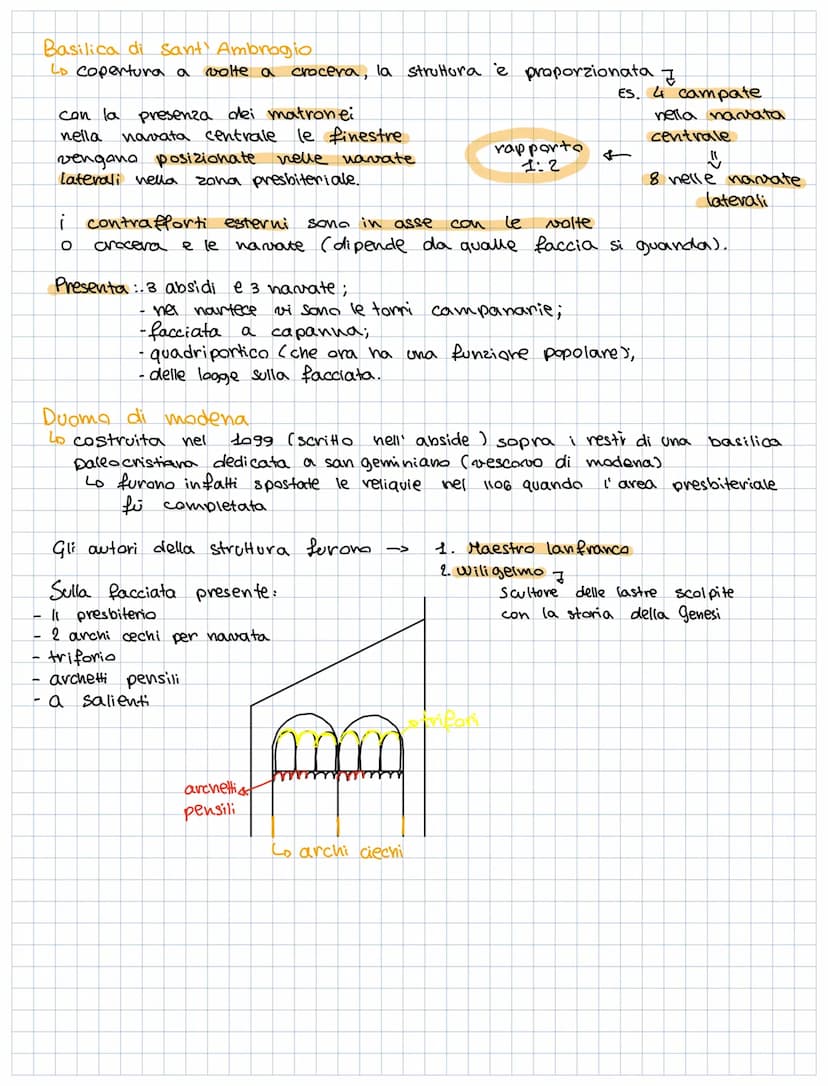 Basilica di Sant' Ambrogio
↳ copertura a volte a crocera, la struttura è proporzionata ↴
ES. 4 campate
nella navata
centrale
⇓
8 nelle navate
laterali
←
rapporto
1:2
con la presenza dei matronei
nella navata centrale le finestre
vengono posizionate nelle navate
laterali nella zona presbiteriale.
i contrafforti esterni sono in asse con le volte
o crocera e le navate (dipende da qualle faccia si guarda).
Presenta:. 3 absidi e 3 navate;
- nel nartece vi sono le torri campanarie;
- facciata a capanna;
- quadriportico (che ora ha una funzione popolare);
- delle logge sulla facciata.
Duomo di modena
↳ costruita nel 1099 (scritto nell' abside) sopra i resti di una basilica
paleocristiana dedicata a san geminiano (vescovo di modena)
↳ furono infatti spostate le reliquie nel 1106 quando l'area presbiteriale
fù completata
Gli autori della struttura furono → 1. Maestro lanfranco
2. Wiligelmo ↴
Scultore delle lastre scolpite
con la storia della Genesi
Sulla facciata presente:
- Il presbiterio
- 2 archi cechi per navata
- triforio
- archetti pensili
- a salienti
trifori
archetti
pensili
↳ archi ciechi